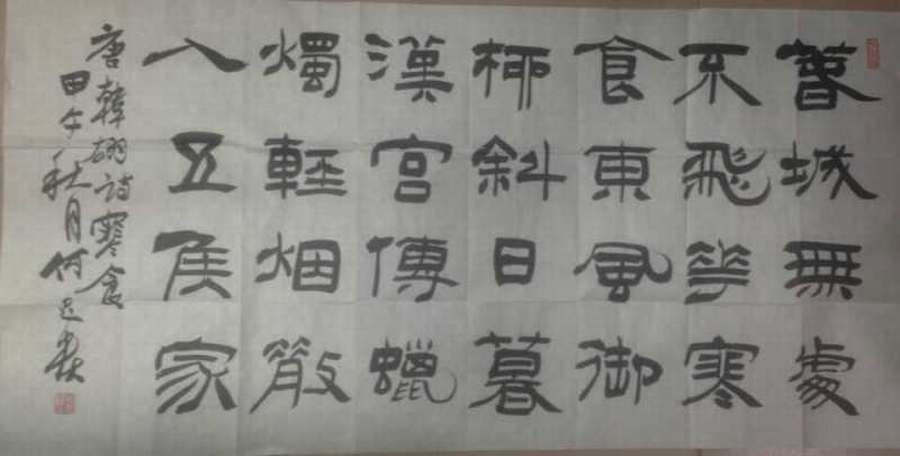 春城無處
不飛花寒
食東風御
柳斜日暮
漢宮傳蠟
燭輕烟散
入五侯家
唐韓翃詩寒食
甲午秋月何春